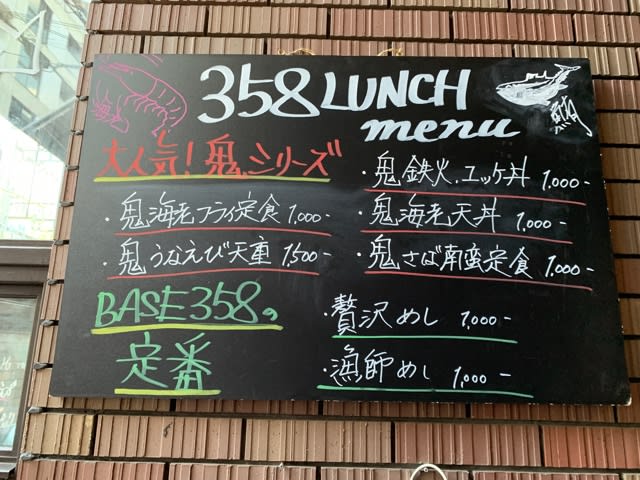 358 LUNCH
menu
大人気!鬼シリーズ
・鬼海老フライ定食 1,000-
・鬼うなえび天重 1,500-
・鬼鉄火.ユッケ丼 1,000-
・鬼海老天丼 1,000-
・鬼さば南蛮定食 1,000-
BASE358の
定番
・贅沢めし 1,000-
・漁師めし 1,000-